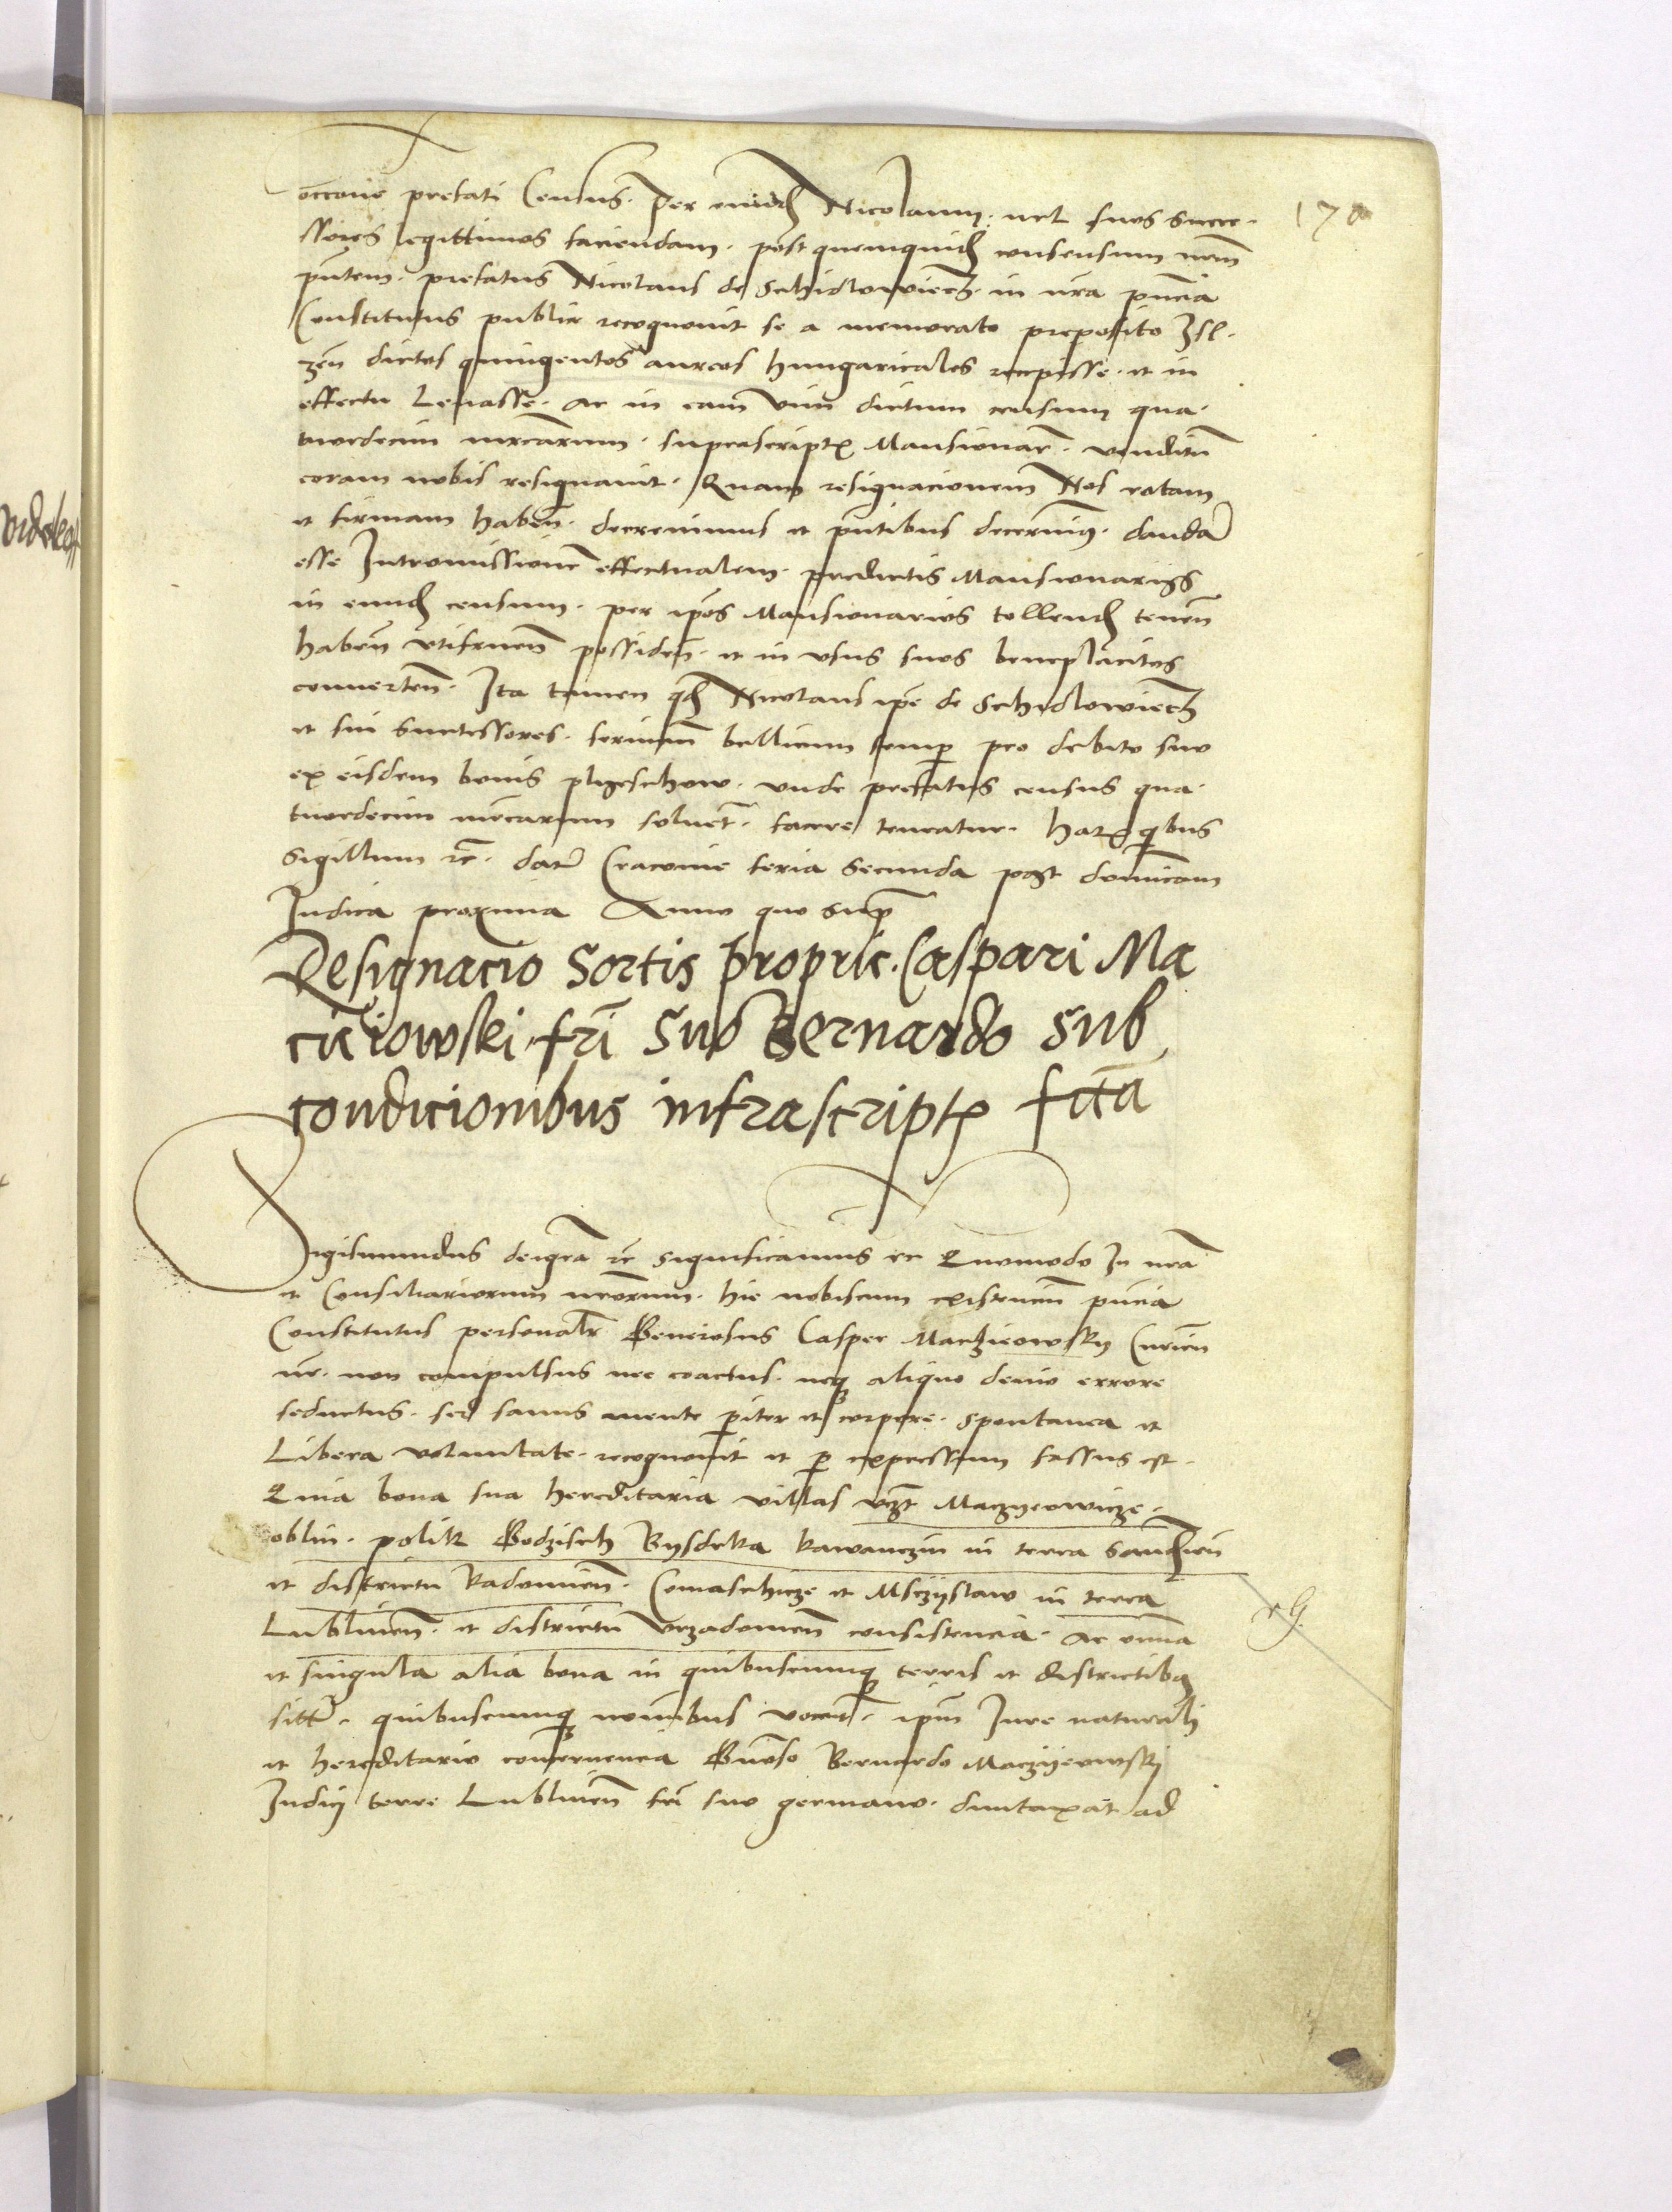 occone prefati Census. per eundẽ Nicolaum. vel suos succe-
170
ssores legittimos faciendam. post quemquidẽ consensum nrm̃
pñtem. prefatus Nicolaus de Schidlowiecz. in nrã pñcia
Constitutus publice recognovit se a memorato preposito Isl-
zeñ dictos quingentos aureos hungaricales recepisse. et in
effectu Levasse. ac in eam vim dictum censum qua-
tuordecim mrcarum. suprascriptis Mansionar̃. venditũ
coram nobis resignavit. Quam resignacionem Nos ratam
et firmam habeñ. decrevimus et pñtibus decernim9. dandã
esse Intromissionẽ effectualem. predictis Mansionarijs
in eundẽ censum. per ip̃os Mansionarios tollendẽ teneñ
habeñ vtifrueñ possideñ. et in vsus suos beneplacitos
converteñ. Ita tamen qd̃ Nicolaus ip̃e de Schidlowiecz
et sui successores. servicium bellicum semp̃ pro debito suo
ex eisdem bonis plyeschow. vnde prefatus census qua-
tuordecim mrcarum solvet̃. facere teneatur. Har̃ qibus
Sigillum rc̃. dat̃ Cracovie feria secunda post dominicam
Judica proxima Anno quo sup̃
Resignacio Sortis proprie. Caspari Ma
cieiowski fri Suo Bernardo Sub
condicionibus infrascript̃ fctã
Sigismundus dei gra rc̃ significamus rc Quomodo In nrã
et Consiliariorum nrorum. hic nobiscum existeñ pñcia
Constitutus personalr̃ Generosus Casper Maczieowsky Curieñ
nr̃. non compulsus nec coactus. neq aliquo devio errore
seductus. sed sanus mente pariter et corpore. spontanea et
Libera voluntate. recognovit et p expressum fassus est.
Quia bona sua hereditaria villas vczt Maczyeowicze.
oblin. polik Godzisch Rysdcka kawanczin in terra Sandomirieñ
et districtu Radomieñ. Comaschicze et Msczyslaw in terra
rg.
Lublineñ. et districtu vrzadomeñ consistencia. ac omnia
et singula alia bona in quibuscumq terris et districtib9
sitt̃. quibuscumq nominibus vocent̃. ip̃m Jure naturali
et hereditario concernencia Gñoso Bernardo Maczyeowsky
Judici terre Lublineñ fri suo germano. duntaxat ad